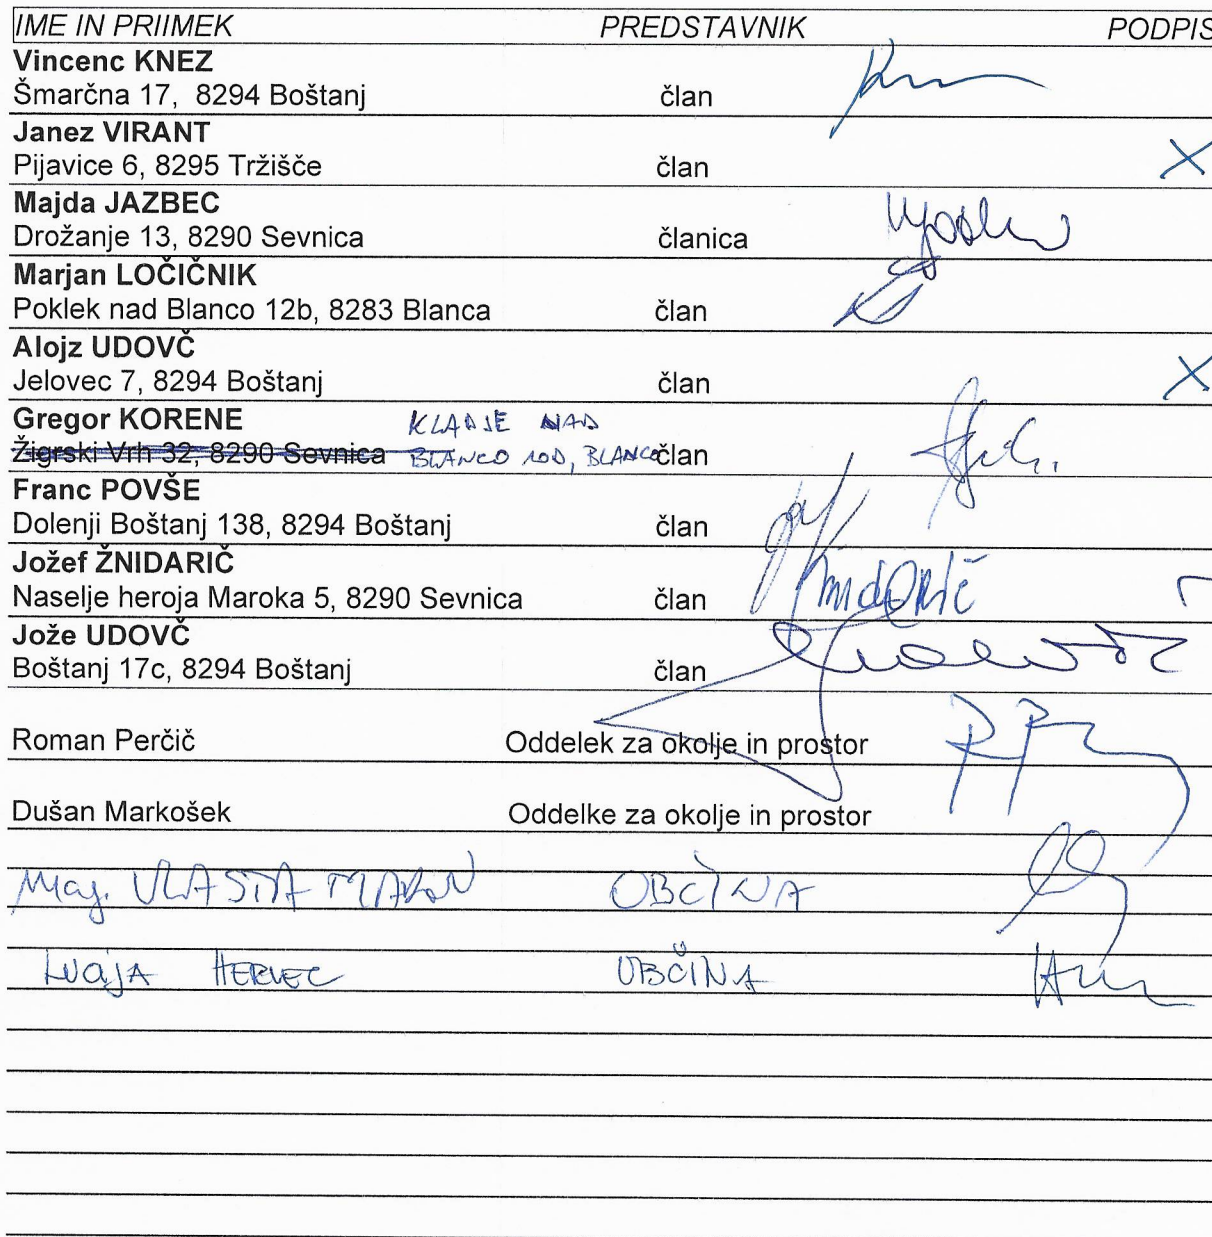 IME IN PRIIMEK PREDSTAVNIK PODPIS
Vincenc KNEZ
Šmarčna 17, 8294 Boštanj član
Janez VIRANT
Pijavice 6, 8295 Tržišče član X
Majda JAZBEC
Drožanje 13, 8290 Sevnica članica
Marjan LOČIČNIK
Poklek nad Blanco 12b, 8283 Blanca član
Alojz UDOVČ
Jelovec 7, 8294 Boštanj član X
Gregor KORENE KLADJE NAD
Žigrski Vrh 32, 8290 Sevnica BLANCO 10D, BLANCA član
Franc POVŠE
Dolenji Boštanj 138, 8294 Boštanj član
Jožef ŽNIDARIČ
Naselje heroja Maroka 5, 8290 Sevnica član Žnidarič
Jože UDOVČ
Boštanj 17c, 8294 Boštanj član
Roman Perčič Oddelek za okolje in prostor
Dušan Markošek Oddelke za okolje in prostor
Mag. VLASTA OBČINA
OBČINA